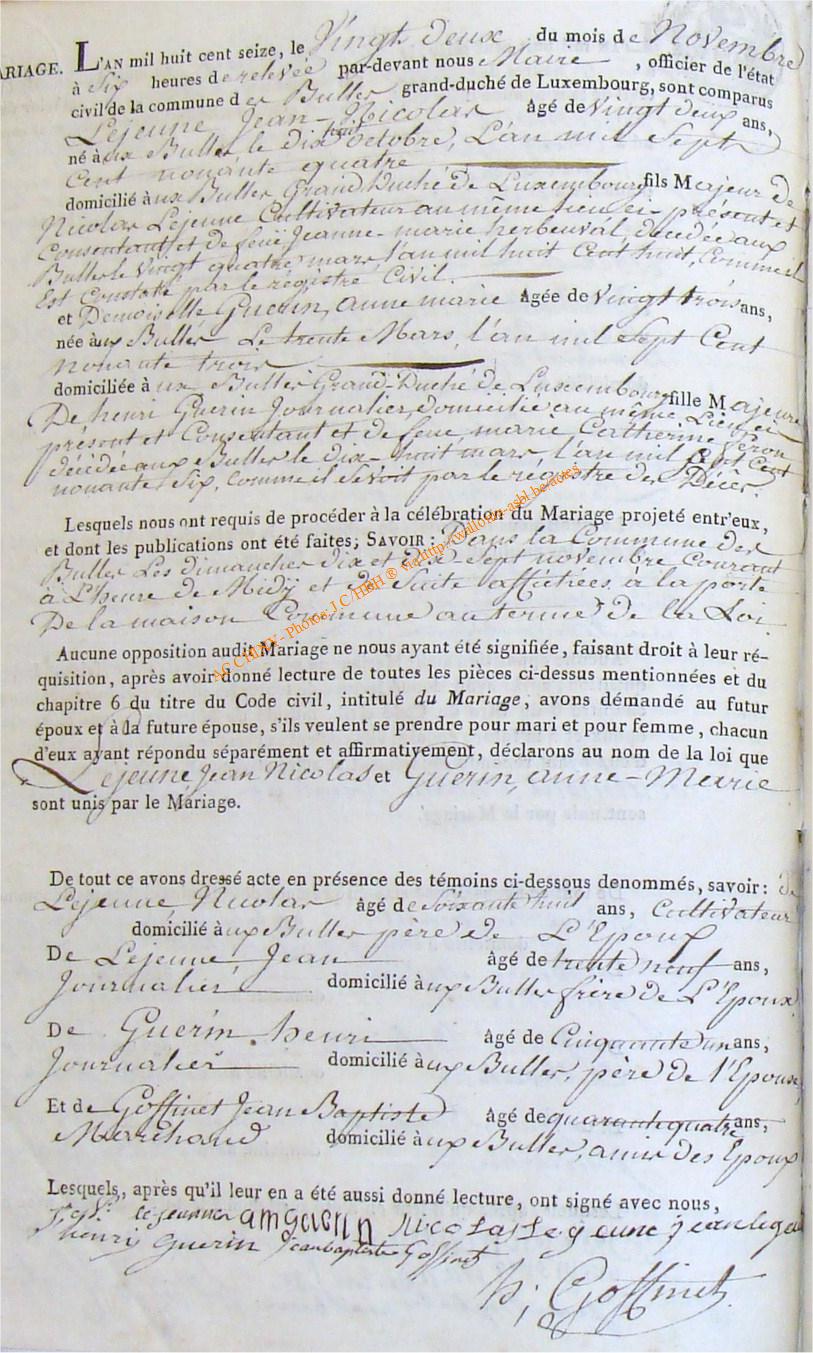 ARIAGE. L'AN mil huit cent seize, le Vingt deux du mois de Novembre
à Six heures de relevée par-devant nous Maire , officier de l'état
civil de la commune d es Bulles grand-duché de Luxembourg, sont comparus
Lejeune Jean-Nicolas Agé de vingt deux ans,
né à ux Bulles le dix huit octobre, L'an mil Sept
Cent nonante quatre
domicilié à ux Bulles Grand Duché de Luxembourg fils Majeur de
Nicolas Lejeune Cultivateur au même lieu ci-présent et
Consentant et de feue Jeanne-marie herbeuval décédée aux
Bulles le Vingt quatre mars l'an mil huit Cent huit, Comme il
Est Constaté par le régistre Civil.
et Demoiselle Guerin, anne marie Agée de vingt trois ans,
née à ux Bulles Le trente Mars, l'an mil Sept Cent
nonante trois
domiciliée à ux Bulles Grand-Duché de Luxembourg fille Majeure
De henri Guerin Journalier, domicilié au même Lieu ci
présent et Consentant et de feue marie Catherine
décédée aux Bulles le dix-huit mars l'an mil Sept Cent
nonante Six, Comme il Se voit par le régistre des Décès.
Lesquels nous ont requis de procéder à la célébration du Mariage projeté entr'eux,
et dont les publications ont été faites; SAVOIR : Dans la Commune des
Bulles Les dimanches dix et dix-Sept novembre Courant
à L'heure de Midy et de Suite affichées à la porte
De la maison Commune au terme de la Loi
Aucune opposition audit Mariage ne nous ayant été signifiée, faisant droit à leur ré-
quisition, après avoir donné lecture de toutes les pièces ci-dessus mentionnées et du
chapitre 6 du titre du Code civil, intitulé du Mariage, avons démandé au futur
époux et à la future épouse, s'ils veulent se prendre pour mari et pour femme, chacun
d'eux ayant répondu séparément et affirmativement, déclarons au nom de la loi que
Lejeune Jean Nicolas et Guerin, anne-Marie
sont unis par le Mariage.
De tout ce avons dressé acte en présence des témoins ci-dessous denommés, savoir : de
Lejeune Nicolas âgé de Soixante huit ans, Cultivateur
domicilié à ux Bulles père de L'Epoux
De Lejeune Jean âgé de trente neuf ans,
Journalier domicilié à ux Bulles frère de L'Epoux
De Guerin henri âgé de Cinquante un ans,
Journalier domicilié à ux Bulles, père de l'Epouse
Et de Goffinet Jean Baptiste âgé de quarante quatre ans,
Marchand domicilié à ux Bulles, amis des Epoux
Lesquels, après qu'il leur en a été aussi donné lecture, ont signé avec nous,
lejeune amguerin nicolas Le jeune jean lejeu
henri Guerin jean baptiste Goffinet
h; Goffinet
AG CHINY - Photos J C / HBH ® via http://wallonia-asbl.be/actes